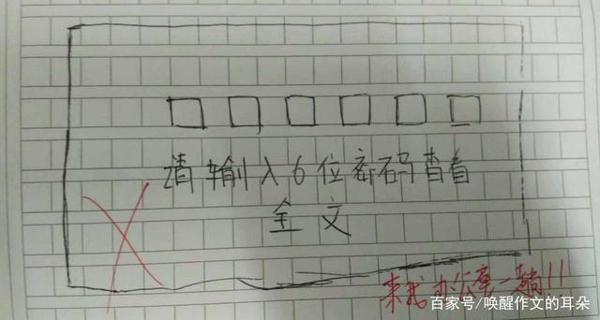 请输入6位密码查看
全文
来我办公室一趟!!
百家号/唤醒作文的耳朵